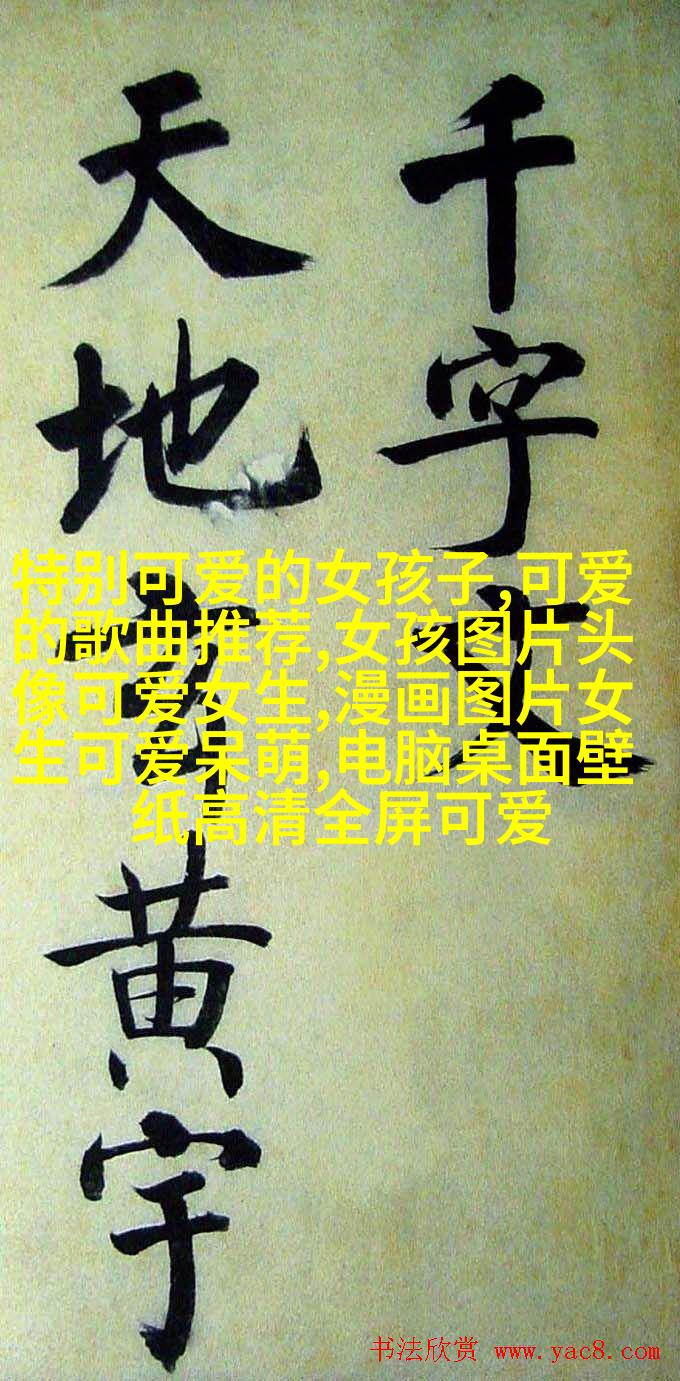 千字文
天地玄黄宇
特别可爱的女孩子,可爱
的歌曲推荐,女孩图片头
像可爱女生,漫画图片女
生可爱呆萌,电脑桌面壁
纸高清全屏可爱
书法欣赏 www.yac8.com